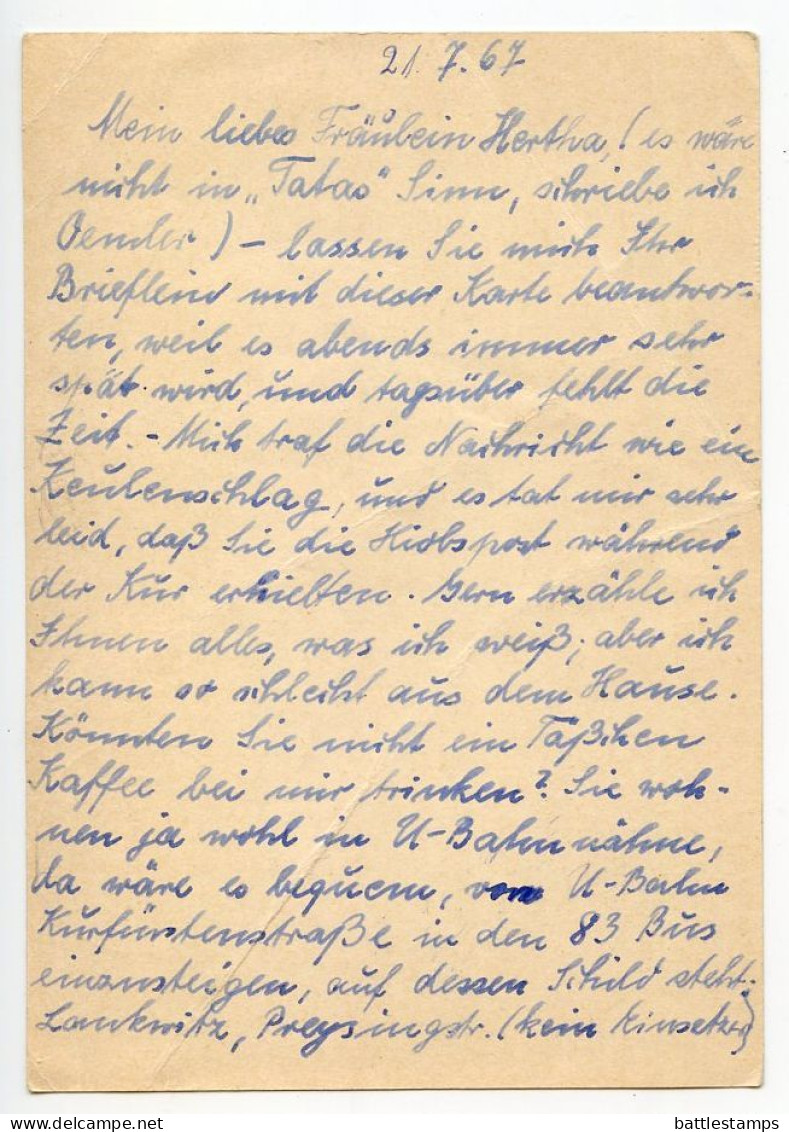 21.7.67
Mein liebes Fräulein Hertha, (es wäre
nicht in „Tatas" Sinn, schriebe ich
Oemler) – lassen Sie mich Ihr
Brieflein mit dieser Karte beantwor-
ten, weil es abends immer sehr
spät wird, und tagsüber fehlt die
Zeit. – Mich traf die Nachricht wie ein
Keulenschlag, und es tat mir sehr
leid, daß Sie die Hiobspost während
der Kur erhielten. Gern erzähle ich
Ihnen alles, was ich weiß; aber ich
kann so schlecht aus dem Hause.
Könnten Sie nicht ein Täßchen
Kaffee bei mir trinken? Sie woh-
nen ja wohl in U-Bahnnähe,
da wäre es bequem, vom U-Bahn
Kurfürstenstraße in den 83 Bus
einzusteigen, auf dessen Schild steht:
Lankwitz, Preysingstr. (kein Einsetzer)
battlestamps